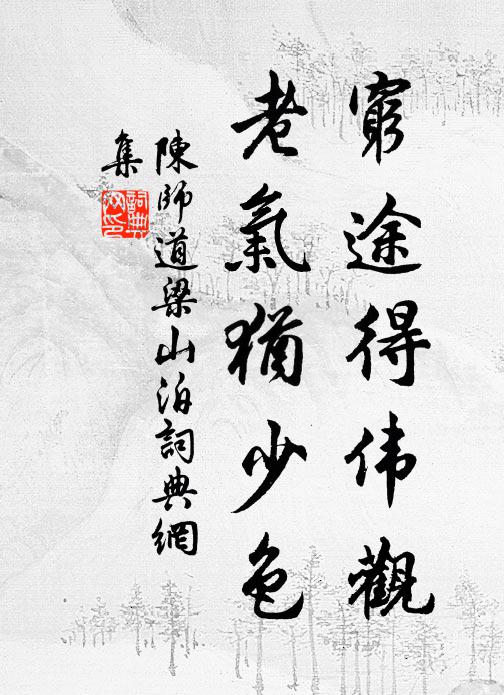 窮途得伟觀
老氣猶少色
陳師道梁山泊詞典網
集
詞典网印